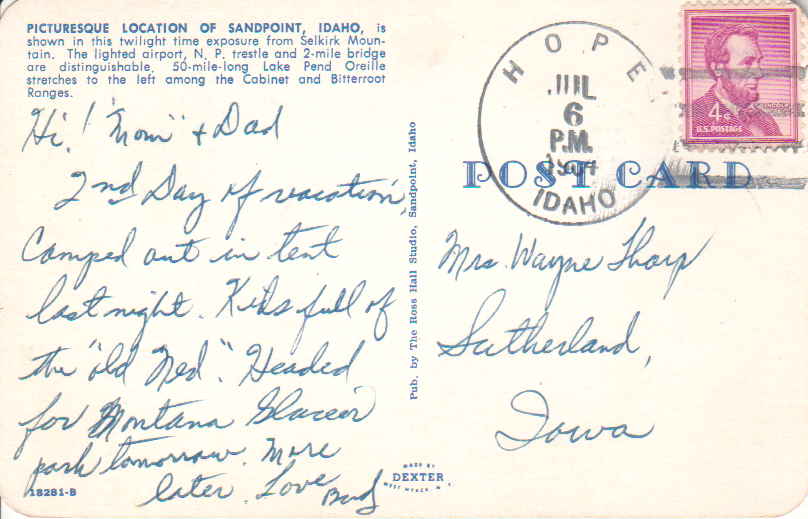 PICTURESQUE LOCATION OF SANDPOINT, IDAHO, is
shown in this twilight time exposure from Selkirk Moun-
tain. The lighted airport, N. P. trestle and 2-mile bridge
are distinguishable. 50-mile-long Lake Pend Oreille
stretches to the left among the Cabinet and Bitterroot
Ranges.
Hi! "Mom" + Dad
2nd Day of vacation,
Camped out in tent
last night. Kids full of
the "old Ned". Headed
for Montana Glacier
park tomorrow. More
later. Love Bud
18281-B
Pub. by The Ross Hall Studio, Sandpoint, Idaho
MADE BY
DEXTER
WEST NYACK, N.Y.
HOPE
JUL
6
P.M.
1964
IDAHO
4¢
LINCOLN
U.S. POSTAGE
POST CARD
Mrs. Wayne Tharp
Sutherland,
Iowa